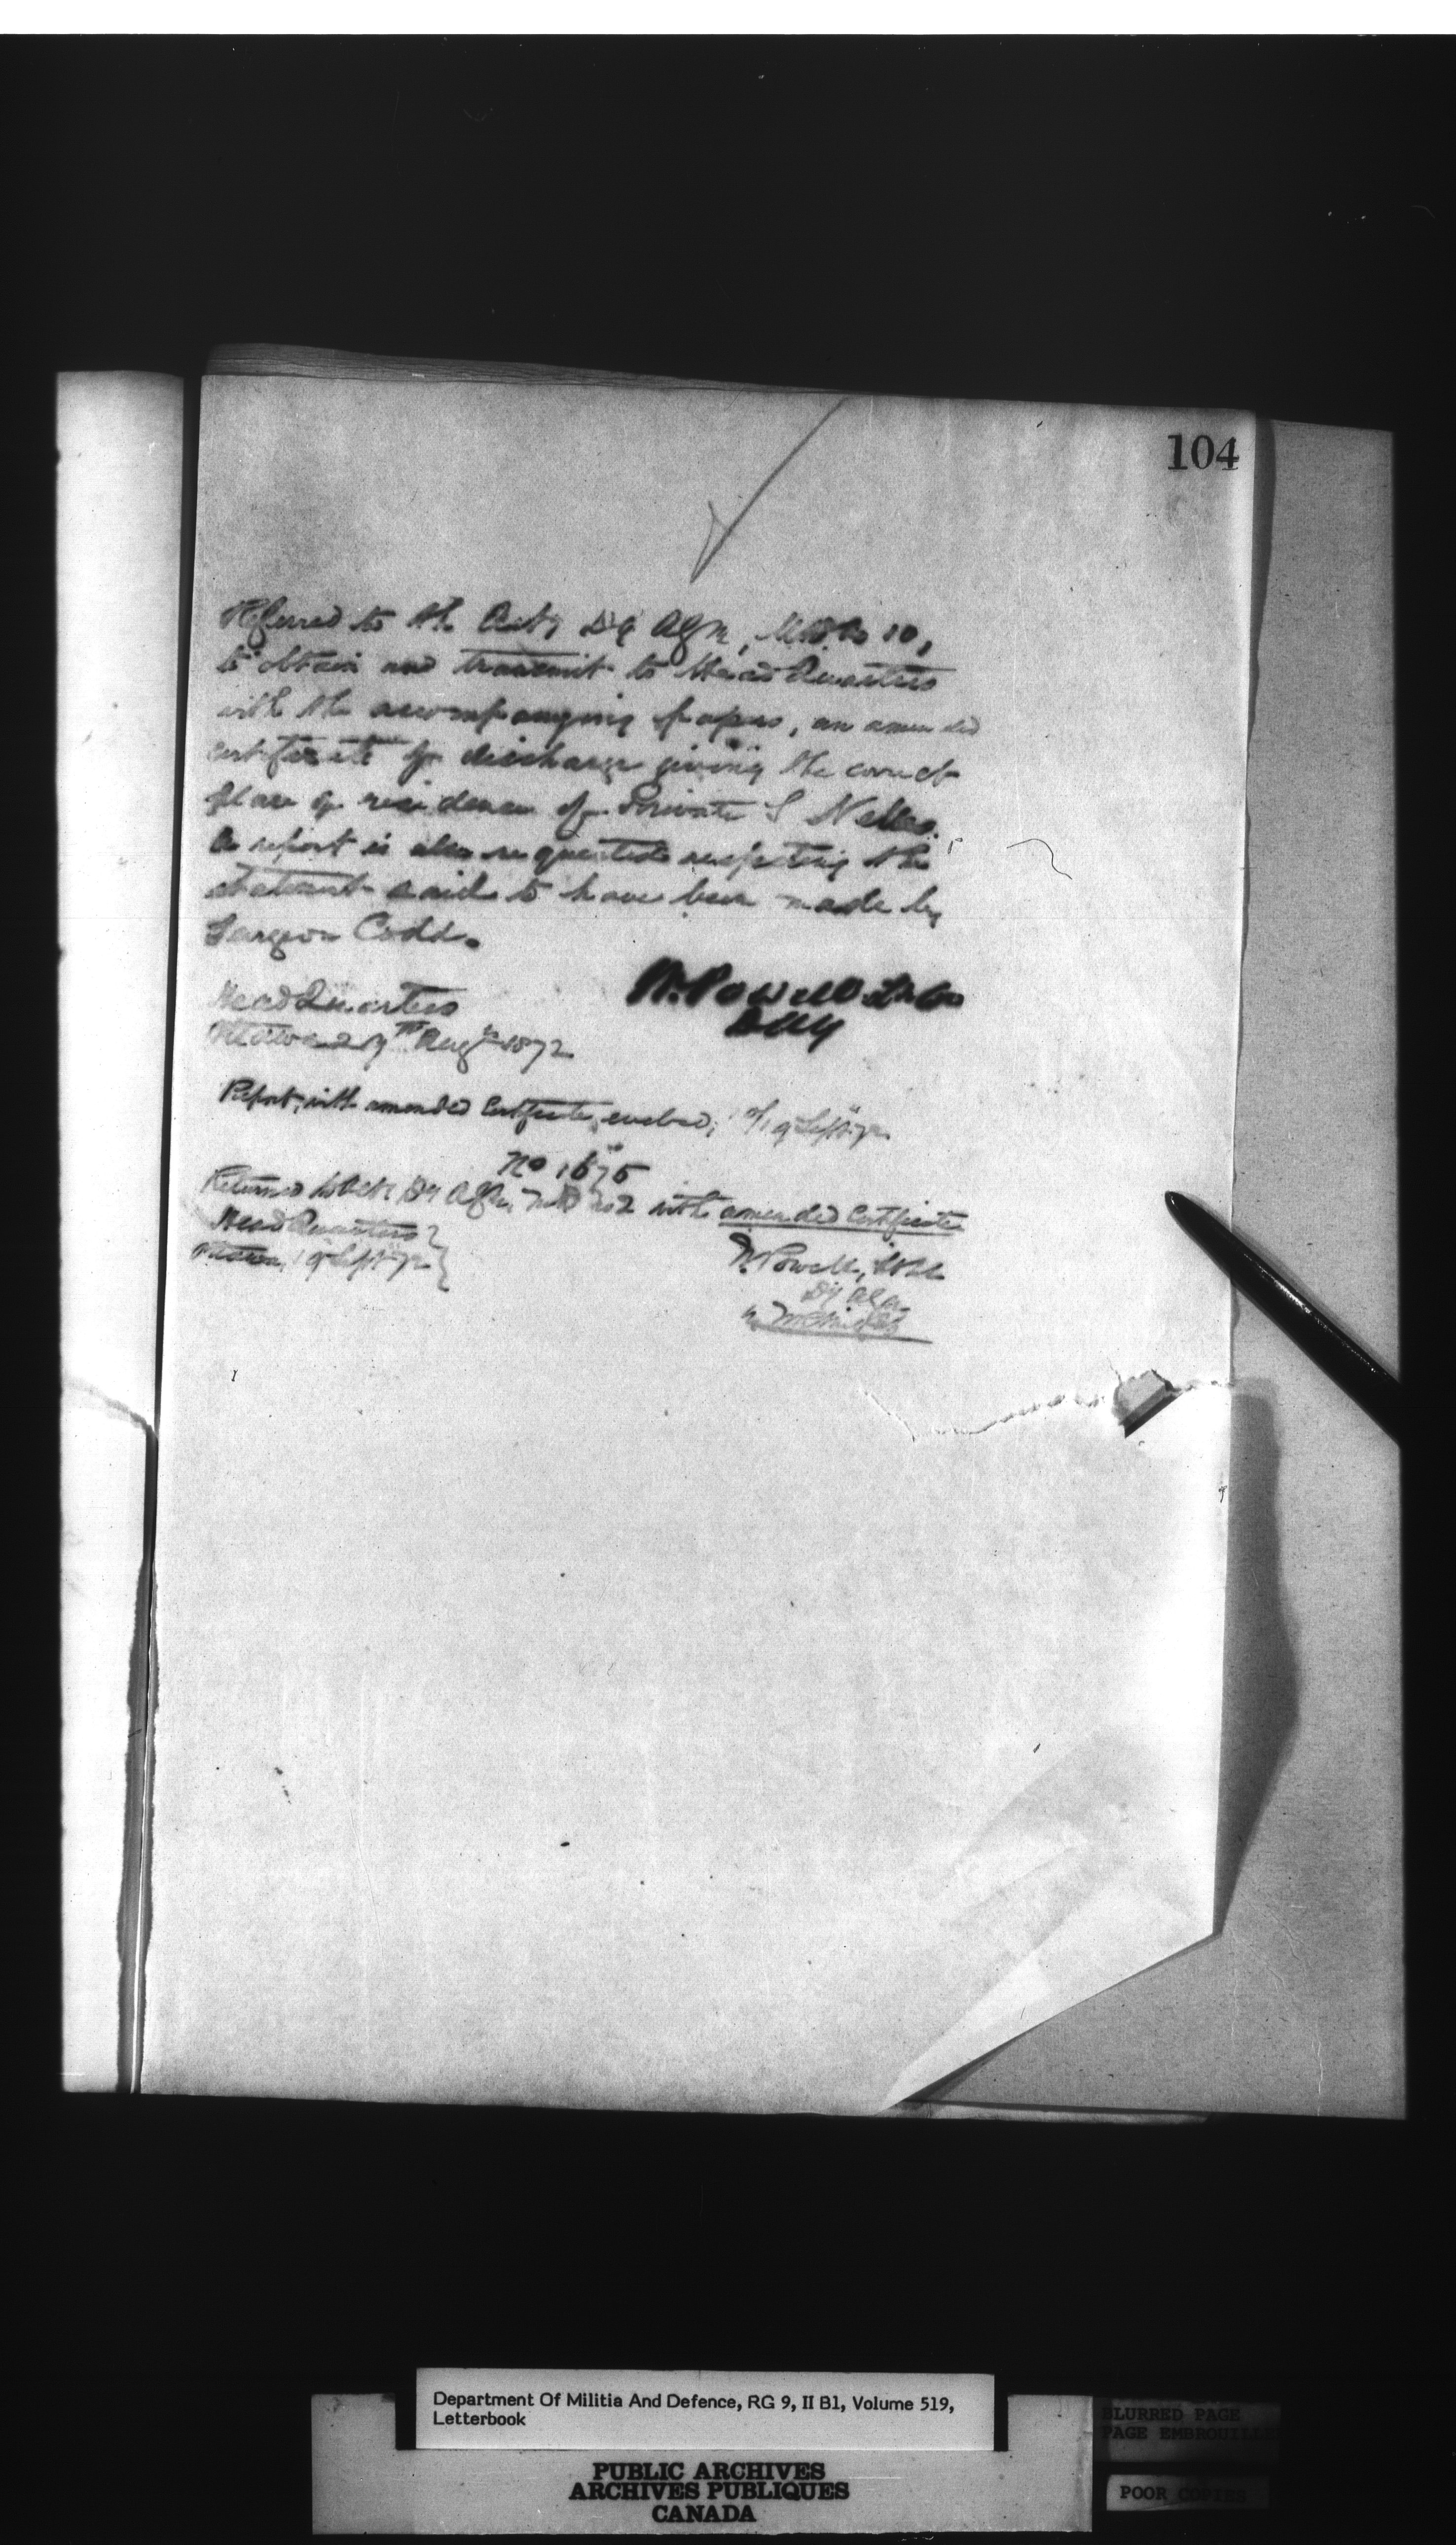 104
Referred to the Actg DA AGM, M.D. No 10,
to obtain and transmit to Head Quarters
with the accompanying papers, an amended
certificate of discharge giving the correct
place of residence of Private S Nelles.
A report is also requested respecting the
statement said to have been made by
Surgeon Codd.
W. Powell Lt Col
DAG
Head Quarters
Ottawa 29th Augt 1872
Report, with amended Certificate, enclosed,
No 1675
Returned to Actg Dy AGM, M D No 2 with amended Certificate
Head Quarters
Ottawa, 19 Sept 72
W. Powell, Lt Col
Dy AGM
Department Of Militia And Defence, RG 9, II B1, Volume 519,
Letterbook
PUBLIC ARCHIVES
ARCHIVES PUBLIQUES
CANADA
BLURRED PAGE
PAGE EMBROUILLEE
POOR COPIES